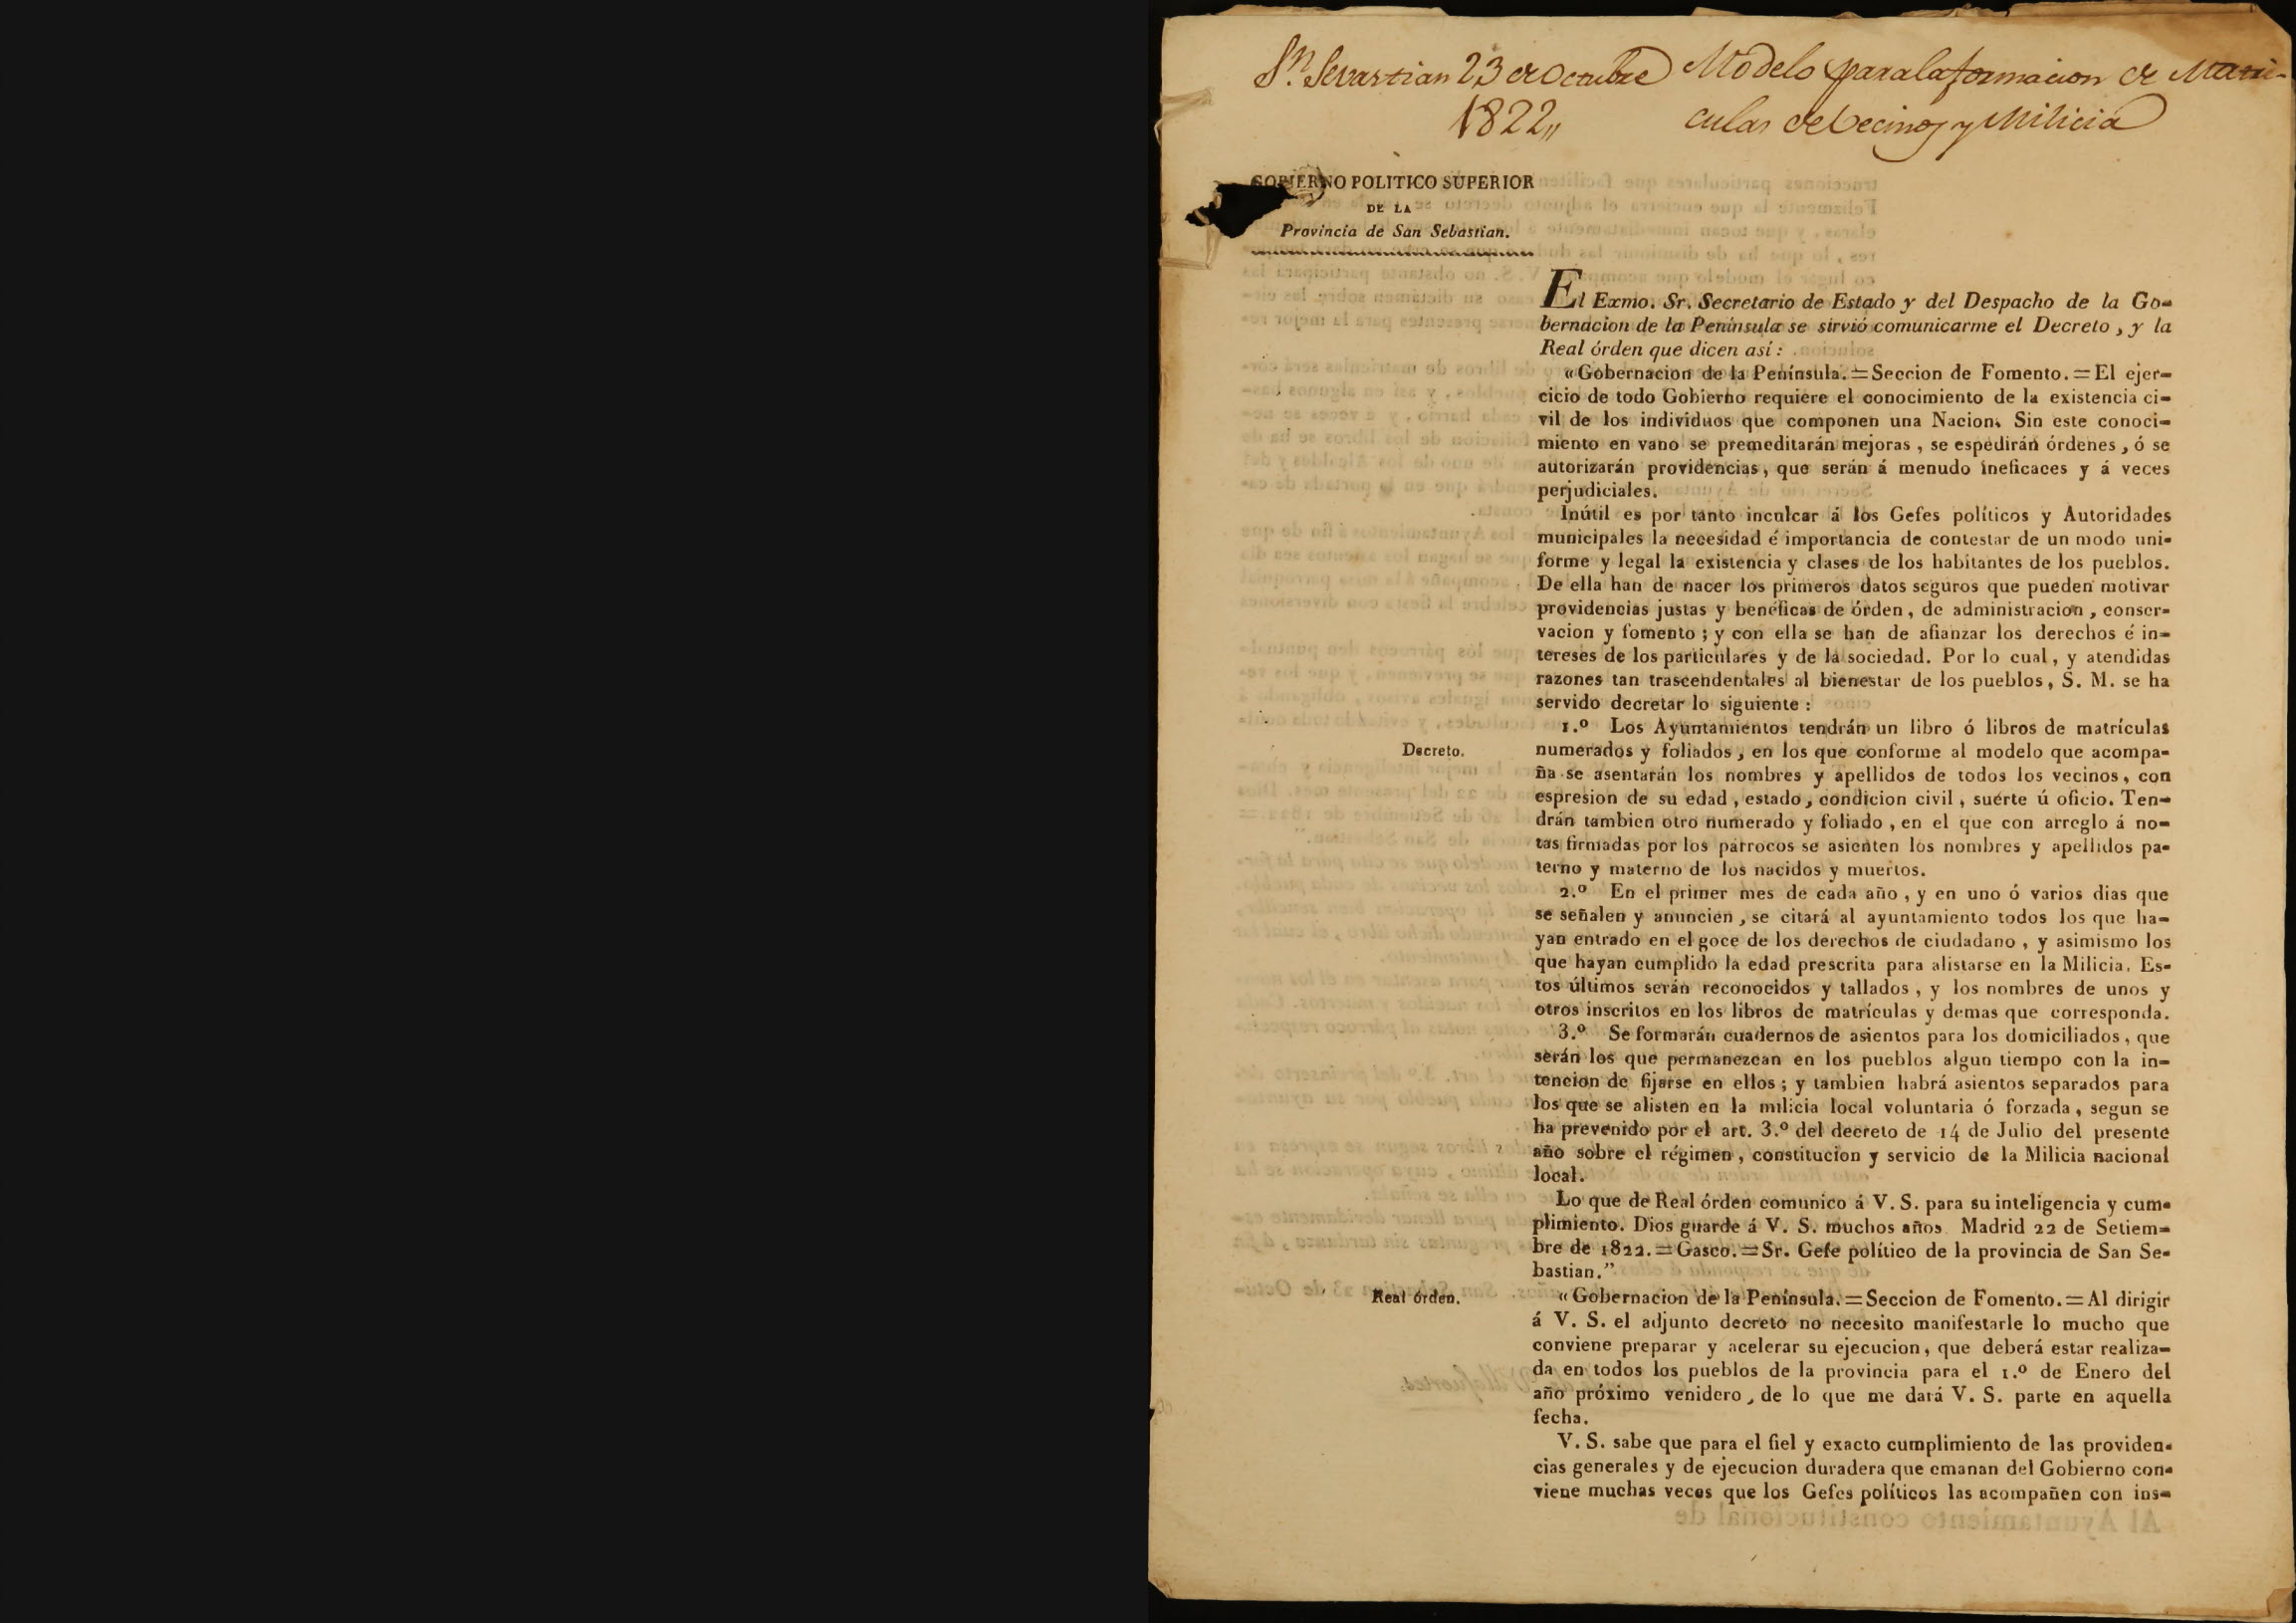 Sn. Sevastian 23 de Octubre
1822„
Modelo para la formacion de Matri-
culas de Vecinos y Milicia
GOBIERNO POLITICO SUPERIOR
DE LA
Provincia de San Sebastian.
El Exmo. Sr. Secretario de Estado y del Despacho de la Go-
bernacion de la Península se sirvió comunicarme el Decreto, y la
Real órden que dicen así:
«Gobernacion de la Península.=Seccion de Fomento.=El ejer-
cicio de todo Gobierno requiere el conocimiento de la existencia ci-
vil de los individuos que componen una Nacion. Sin este conoci-
miento en vano se premeditarán mejoras, se espedirán órdenes, ó se
autorizarán providencias, que serán á menudo ineficaces y á veces
perjudiciales.
Inútil es por tanto inculcar á los Gefes políticos y Autoridades
municipales la necesidad é importancia de contestar de un modo uni-
forme y legal la existencia y clases de los habitantes de los pueblos.
De ella han de nacer los primeros datos seguros que pueden motivar
providencias justas y benéficas de órden, de administracion, conser-
vacion y fomento; y con ella se han de afianzar los derechos é in-
tereses de los particulares y de la sociedad. Por lo cual, y atendidas
razones tan trascendentales al bienestar de los pueblos, S. M. se ha
servido decretar lo siguiente:
Decreto.
1.º Los Ayuntamientos tendrán un libro ó libros de matrículas
numerados y foliados, en los que conforme al modelo que acompa-
ña se asentarán los nombres y apellidos de todos los vecinos, con
espresion de su edad, estado, condicion civil, suerte ú oficio. Ten-
drán tambien otro numerado y foliado, en el que con arreglo á no-
tas firmadas por los párrocos se asienten los nombres y apellidos pa-
terno y materno de los nacidos y muertos.
2.º En el primer mes de cada año, y en uno ó varios dias que
se señalen y anuncien, se citará al ayuntamiento todos los que ha-
yan entrado en el goce de los derechos de ciudadano, y asimismo los
que hayan cumplido la edad prescrita para alistarse en la Milicia. Es-
tos últimos serán reconocidos y tallados, y los nombres de unos y
otros inscritos en los libros de matrículas y demas que corresponda.
3.º Se formarán cuadernos de asientos para los domiciliados, que
serán los que permanezcan en los pueblos algun tiempo con la in-
tencion de fijarse en ellos; y tambien habrá asientos separados para
los que se alisten en la milicia local voluntaria ó forzada, segun se
ha prevenido por el art. 3.º del decreto de 14 de Julio del presente
año sobre el régimen, constitucion y servicio de la Milicia nacional
local.
Lo que de Real órden comunico á V. S. para su inteligencia y cum-
plimiento. Dios guarde á V. S. muchos años. Madrid 22 de Setiem-
bre de 1822.=Gasco.=Sr. Gefe político de la provincia de San Se-
bastian.”
Real órden.
«Gobernacion de la Península.=Seccion de Fomento.=Al dirigir
á V. S. el adjunto decreto no necesito manifestarle lo mucho que
conviene preparar y acelerar su ejecucion, que deberá estar realiza-
da en todos los pueblos de la provincia para el 1.º de Enero del
año próximo venidero, de lo que me dará V. S. parte en aquella
fecha.
V. S. sabe que para el fiel y exacto cumplimiento de las providen-
cias generales y de ejecucion duradera que emanan del Gobierno con-
viene muchas veces que los Gefes políticos las acompañen con ins-